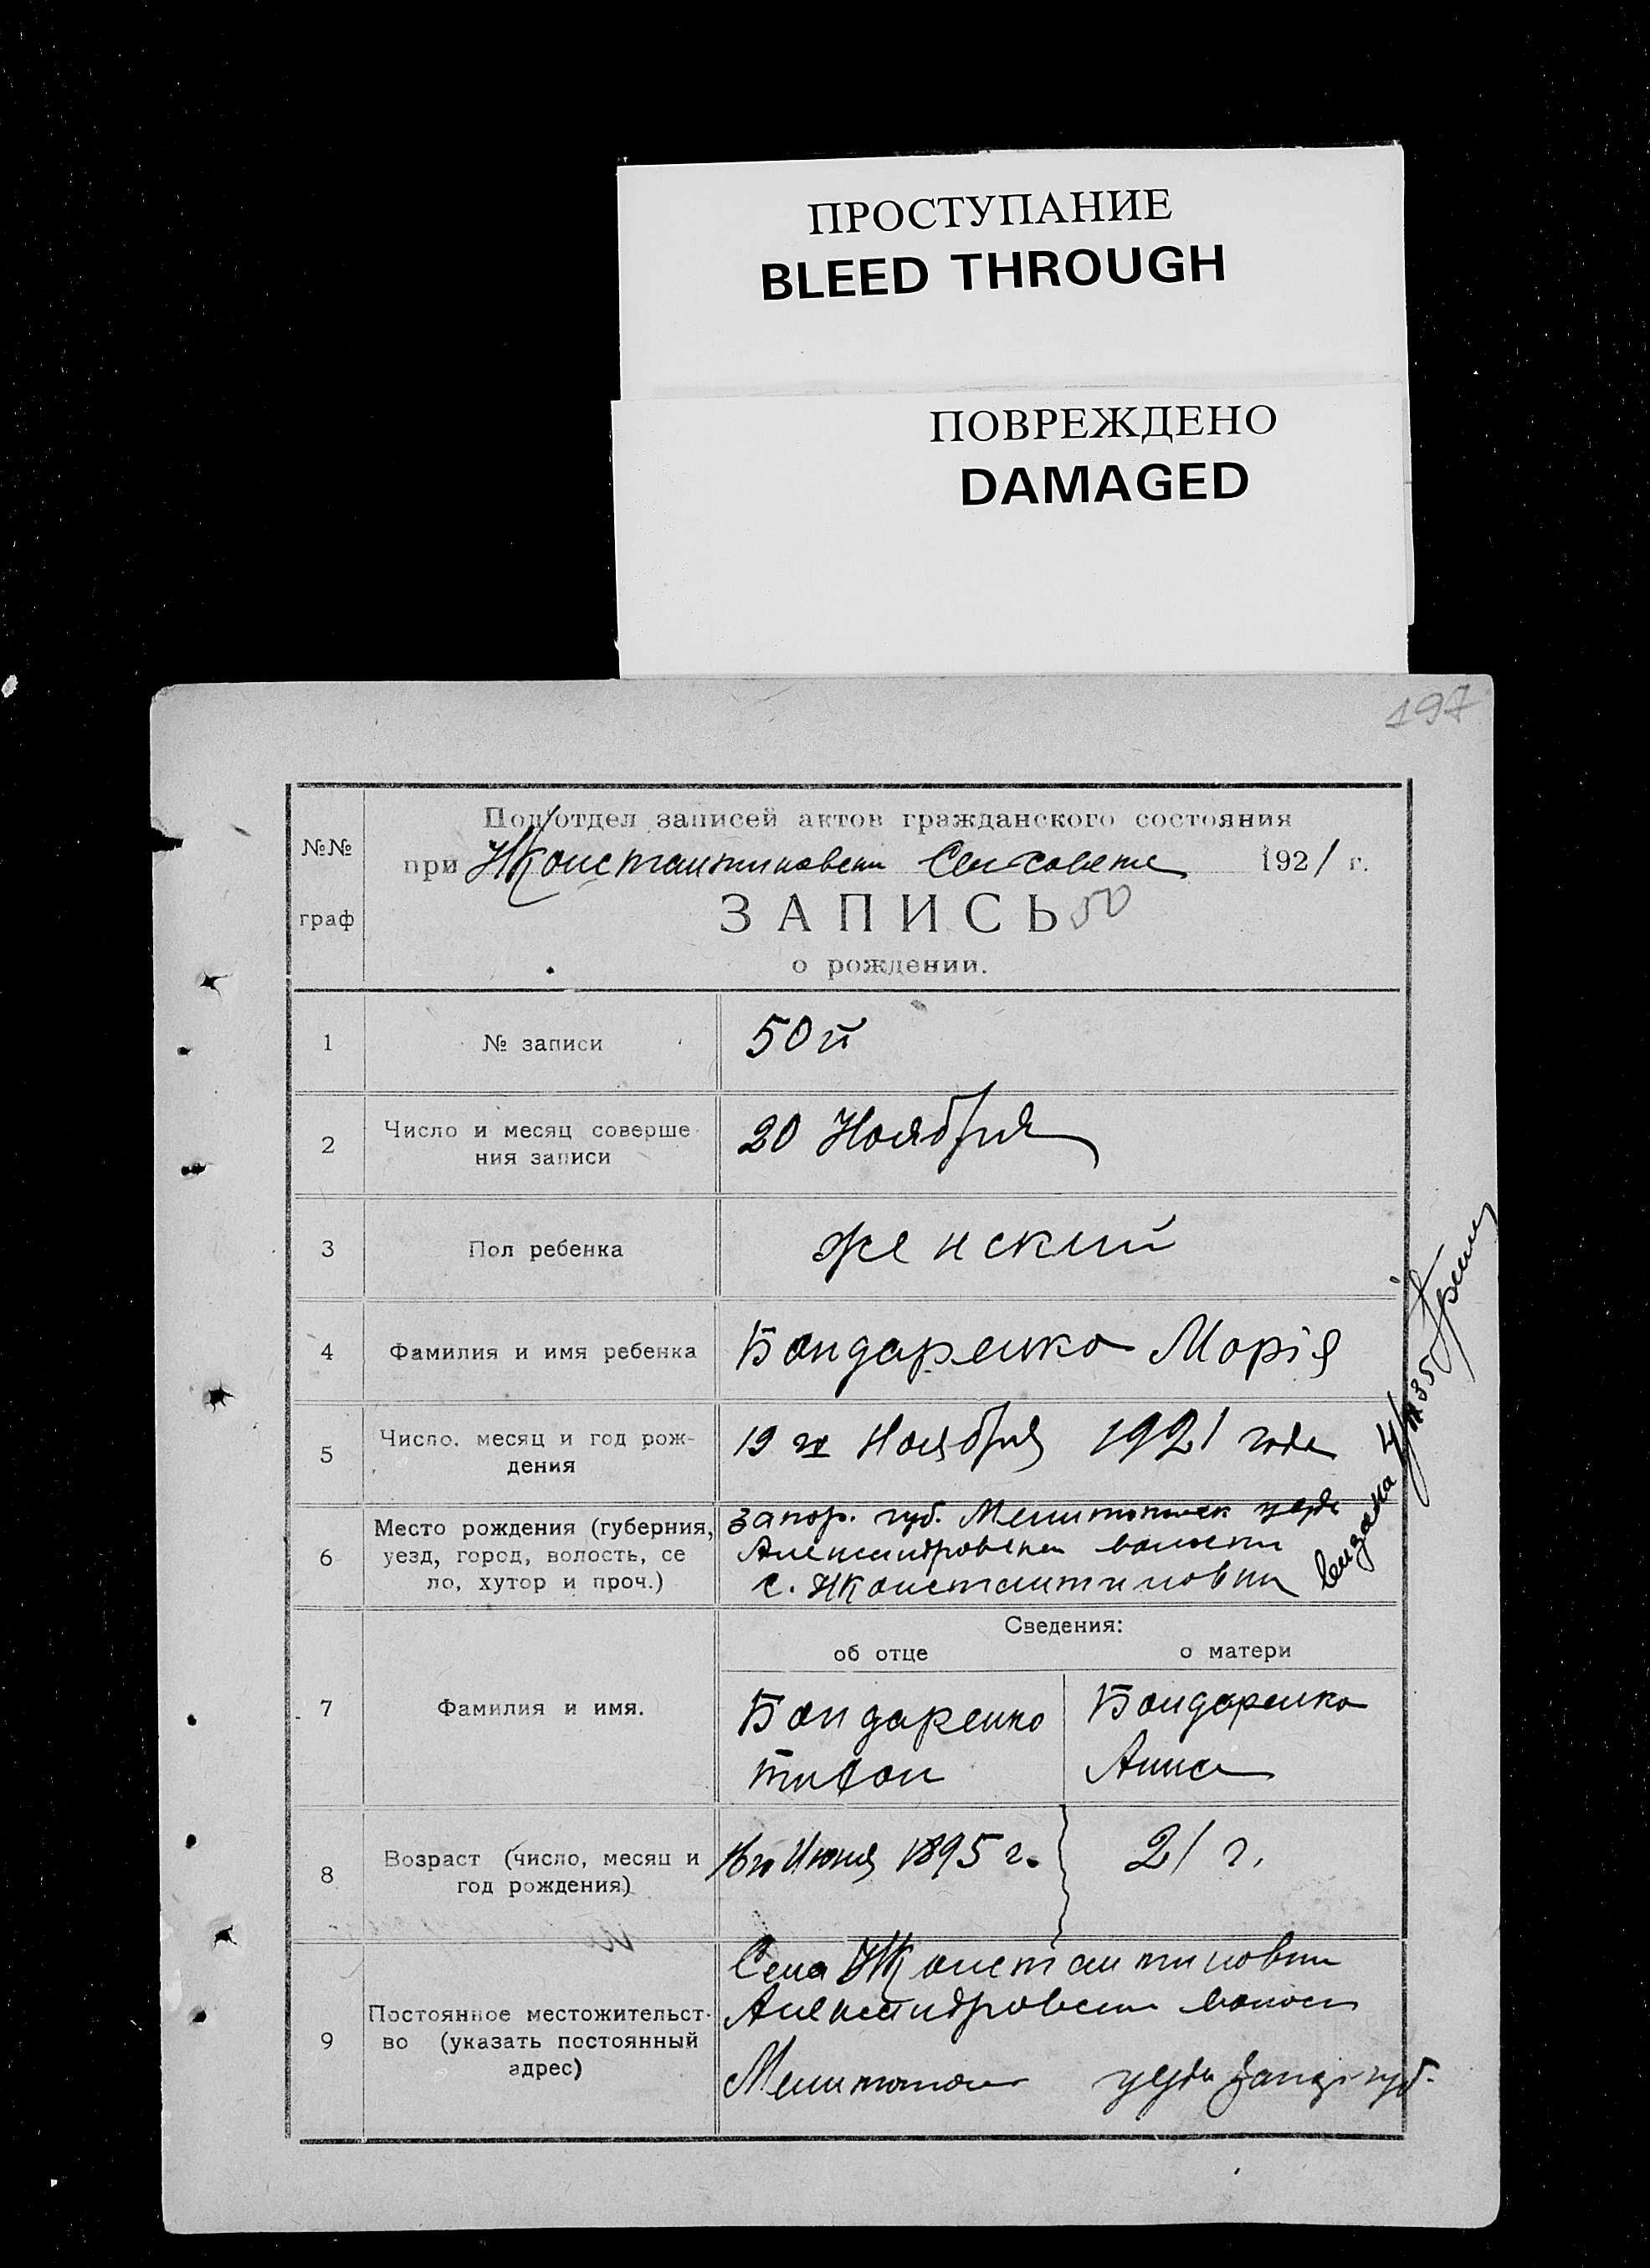 ПРОСТУПАНИЕ
BLEED THROUGH
ПОВРЕЖДЕНО
DAMAGED
197
№№
граф
Под/отдел записей актов гражданского состояния
при НКонстантиновском Сельсовете 1921 г.
ЗАПИСЬ 50
о рождении.
1 № записи 50й
2 Число и месяц соверше- 20 Ноября
ния записи
3 Пол ребенка женский
4 Фамилия и имя ребенка Бондаренко Морія
5 Число, месяц и год рож- 19 го Ноября 1921 года
дения
6 Место рождения (губерния, запор. губ. Мелитопольск уезда
уезд, город, волость, се Александровской волости
ло, хутор и проч.) с. НКонстантиновки
Сведения:
об отце о матери
7 Фамилия и имя. Бондаренко Бондаренко
Анна
8 Возраст (число, месяц и 16го Июня 1895 г. 21 г.
год рождения)
9 Постоянное местожительст- Села НКонстантиновки
во (указать постоянный Александровской волости
адрес) Мелитополь уезда Запор губ.